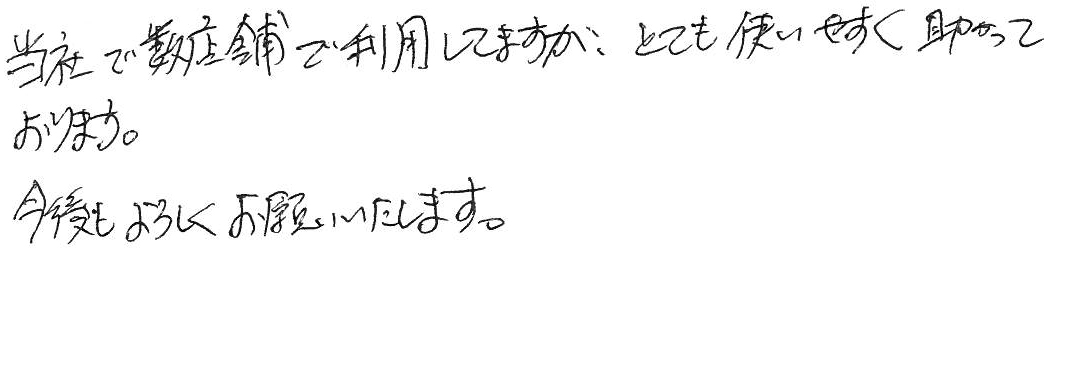 当社で数店舗で利用してますが、とても使いやすく助かって
おります。
今後もよろしくお願いいたします。